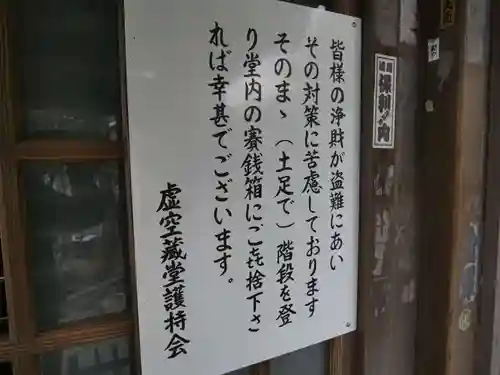 皆様の浄財が盗難にあい
その対策に苦慮しております
そのまゝ（土足で）階段を登
り堂内の賽銭箱にご㐂捨下さ
れば幸甚でございます。
虚空蔵堂護持会